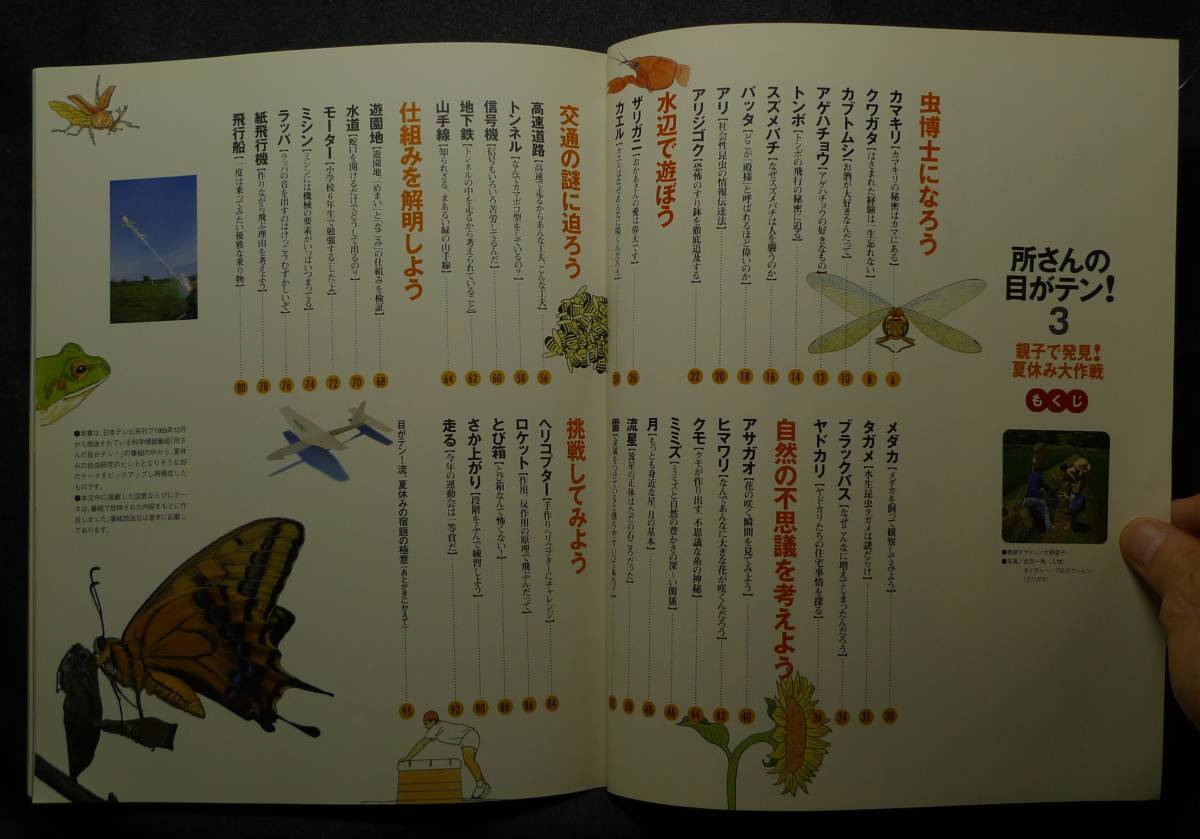 所さんの
目がテン!
3
親子で発見!
夏休み大作戦
もくじ
虫博士になろう
カマキリ【カマキリの秘密はカマにある】 6
クワガタ【はさまれた経験は一生忘れない】 8
カブトムシ【お酒が大好きなんだって】 10
アゲハチョウ【アゲハチョウの好きなもの】 12
トンボ【トンボの飛行の秘密に迫る】 14
スズメバチ【なぜスズメバチは人を襲うのか】 16
バッタ【どこが「殿様」と呼ばれるほど偉いのか】 18
アリ【社会性昆虫の情報伝達法】 20
アリジゴク【恐怖のすり鉢を徹底追及する】 22
水辺で遊ぼう
ザリガニ【おかあさんの愛は偉大です】 26
カエル【カエルはなぜあんなに鳴くんだろう】
メダカ【メダカを飼って観察してみよう】 30
タガメ【水生昆虫タガメは謎だらけ】 32
ブラックバス【なぜこんなに増えてしまったんだろう】 34
ヤドカリ【ヤドカリたちの住宅事情を探る】 36
自然の不思議を考えよう
アサガオ【花の咲く瞬間を見てみよう】 40
ヒマワリ【なんであんなに大きな花が咲くんだろう】 42
クモ【クモが作り出す、不思議な糸の神秘】 44
ミミズ【ミミズと自然の豊かさの深〜い関係】 46
月【もっとも身近な星、月の基本】 48
流星【流星の正体はただの石ころだった】 50
雷
交通の謎に迫ろう
高速道路【高速で走るからあんな工夫、こんな工夫】 56
トンネル【なんでカマボコ型をしているの?】 58
信号機【信号もいろいろ苦労してるんだ】 60
地下鉄【トンネルの中を走るから考えられていること】 62
山手線【知られざる、まあるい緑の山手線】 64
仕組みを解明しよう
遊園地【遊園地「めまい」と「なごみ」の仕組みを検証】 68
水道【蛇口を開けるだけでどうして出るの?】 70
モーター【小学校6年生で勉強する(した)よ】 72
ミシン【ミシンには機械の要素がいっぱいつまってる】 74
ラッパ【ラッパの音を出すのはけっこうむずかしいぞ】 76
紙飛行機【作りながら飛ぶ理由を考えよう】 78
飛行船【一度は乗ってみたい優雅な乗り物】 80
挑戦してみよう
ヘリコプター【手作りヘリコプターにチャレンジ】 84
ロケット【作用、反作用の原理で飛ぶんだって】 86
とび箱【とび箱なんて怖くない!】 88
さか上がり【段階をふんで練習しよう】 90
走る【今年の運動会は一等賞だ】 92
目がテン!流、夏休みの宿題の極意(あとがきにかえて) 95
●本書は、日本テレビ系列で1989年10月
から放送されている科学情報番組「所さ
んの目がテン!」の番組の中から、夏休
みの自由研究のヒントとなりそうな39
のテーマをピックアップし再構成した
ものです。
●本文中に掲載した図表ならびにデー
タは、番組で放映された内容をもとに作
成しました。番組放送日は巻末に記載し
てあります。
●表紙デザイン/大野愛子
ネイチャー・プロダクション
(クワガタ)